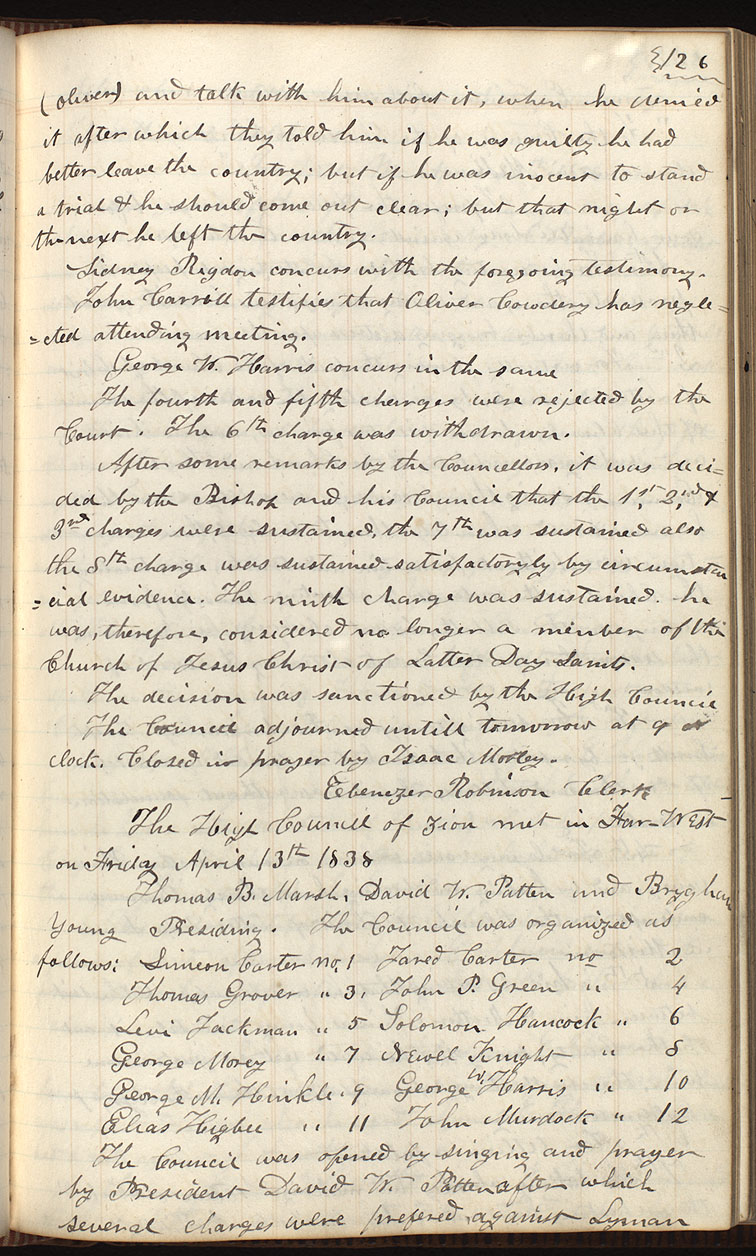 126
(oliver) and talk with him about it, when he denied
it after which they told him if he was guilty he had
better leave the country; but if he was inocent to stand
a trial & he should come out clear; but that night or
the next he left the country.
Sidney Rigdon concurs with the foregoing testimony.
John Corrill testifies that Oliver Cowdery has negle=
=cted attending meeting.
George W. Harris concurs in the same
The fourth and fifth charges were rejected by the
Court. The 6th charge was withdrawn.
After some remarks by the Councellors, it was deci-
ded by the Bishop and his Council that the 1st, 2nd &
3rd charges were sustained, the 7th was sustained also
the 8th charge was sustained satisfactoryly by circumstan
=cial evidence. The ninth charge was sustained. he
was, therefore, considered no longer a member of the
Church of Jesus Christ of Latter Day Saints.
The decision was sanctioned by the High Council
The Council adjourned untill tomorrow at 9 o
clock. Closed in prayer by Isaac Morley.
Ebenezer Robinson Clerk
The High Council of Zion met in Far-West
on Friday April 13th 1838
Thomas B. Marsh, David W. Patten and Brygham
Young Presiding. The Council was organized as
follows: Simeon Carter no, 1 Jared Carter no 2
Thomas Grover " 3, John P. Green " 4
Levi Jackman " 5 Solomon Hancock " 6
George Morey " 7 Newel Knight " 8
George M. Hinkle . 9 George W. Harris " 10
Elias Higbee " 11 John Murdock " 12
The Council was opened by singing and prayer
by President David W. Patten after which
several charges were prefered against Lyman